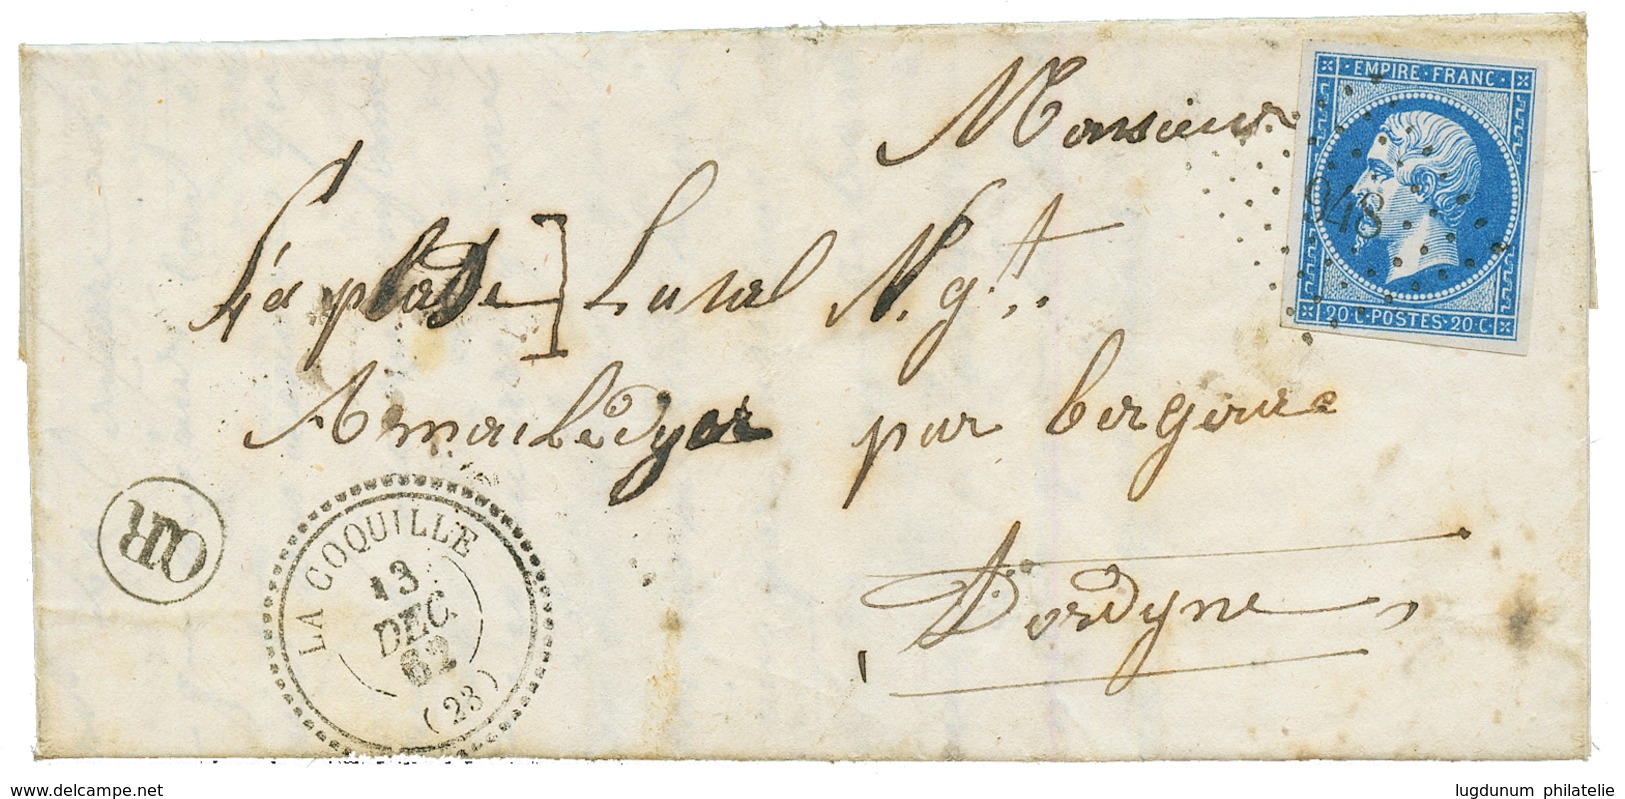 Monsieur
EMPIRE · FRANC ·
948
20 C · POSTES · 20 C
Laplade Lusal N.gt.
par bergerac
Dordyne
OR
LA COQUILLE
13
DEC
62
(23)
www.delcampe.net
lugdunum philatelie